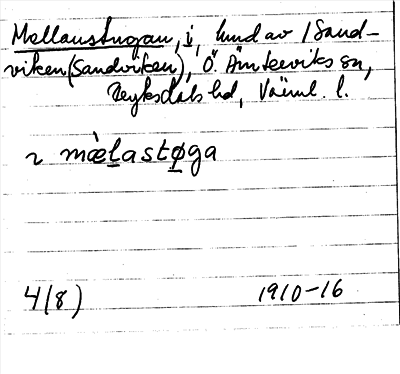 Mellanstugan, i, hmd av /Sand-
viken (Sandviken), Ö. Ämterviks sn,
Fryksdals hd, Värml. l.
2 mælastøga
4(8) 1910-16